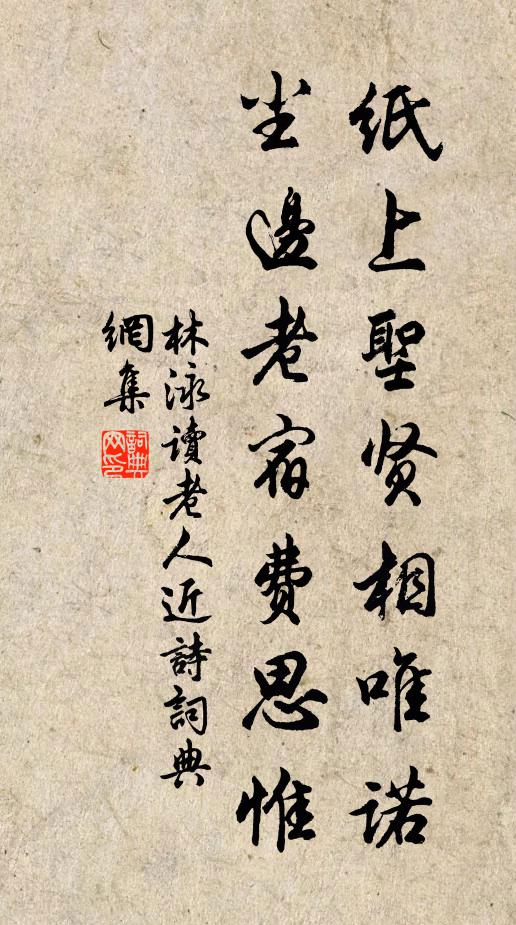 紙上聖贤相唯诺
坐邊老宿费思惟
林泳讀老人近詩詞典
網集
詞典
网印